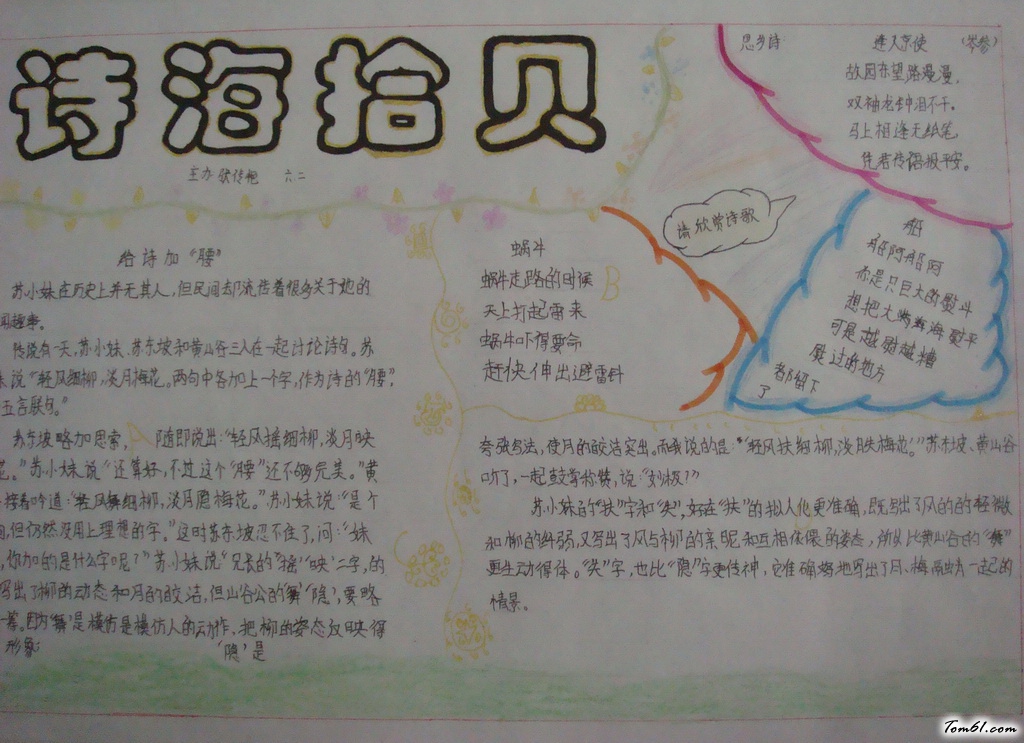 诗海拾贝
主办 六二
思乡诗
逢入京使 (岑参)
故园东望路漫漫,
双袖龙钟泪不干。
马上相逢无纸笔
凭君传语报平安。
请欣赏诗歌
给诗加“腰”
苏小妹在历史上并无其人,但民间却流传着很多关于她的
趣事。
传说有一天,苏小妹、苏东坡和黄山谷三人在一起讨论诗句。苏
说“轻风细柳,淡月梅花。两句中各加上一个字,作为诗的“腰”,
五言联句。”
苏东坡略加思索, 随即说出:“轻风摇细柳,淡月映
”苏小妹说“还算好,不过这个“腰”还不够完美。”黄
接着吟道:“轻风舞细柳,淡月隐梅花。”苏小妹说:“是个
但仍然没用上理想的字。”这时苏东坡忍不住了,问:“妹
你加的是什么字呢?”苏小妹说“兄长的“摇”“映”二字,的
写出了柳的动态和月的皎洁,但山谷公的‘舞’‘隐’,要略
因为‘舞’是模仿是模仿人的动作,把柳的姿态反映得
形象; ‘隐’是
蜗牛
蜗牛走路的时候
天上打起雷来
蜗牛吓得要命
赶快伸出避雷针
船
船阿船阿
你是只巨大的熨斗
想把大海熨平
可是越熨越糟
熨过的地方
都留下
了
夸张写法,使月的皎洁突出。而我说的是:“轻风扶细柳,淡月失梅花。”苏东坡、黄山谷
听了,一起鼓掌称赞,说:“妙极了”
苏小妹的“扶”字和“失”,好在“扶”的拟人化更准确,既写出了风的的轻微
和柳的纤弱,又写出了风与柳的亲昵和互相依偎的姿态,所以比黄山谷的“舞”
更生动得体。“失”字,也比“隐”字更传神,它准确地写出了月、梅一起的
情景。
Tom61.com